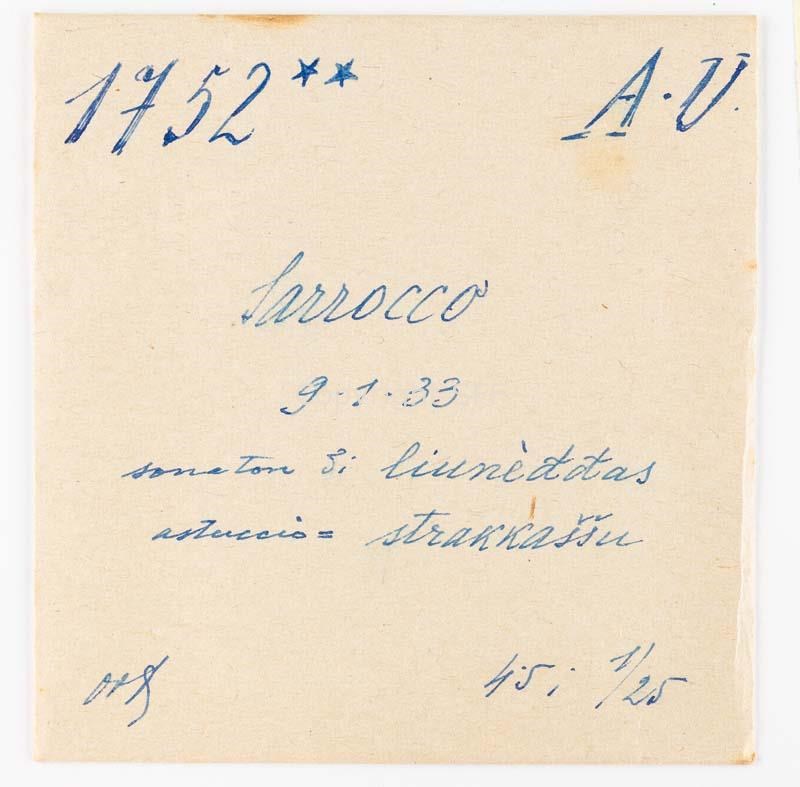 1752** A.V.
Sarrocco
9-1-33
sonaton di liunèđđas
astuccio= strakkaššu
ort
4.5; 1/25